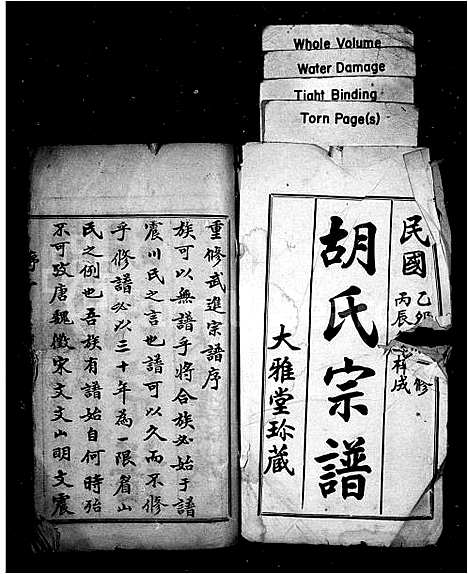 Whole Volume
Water Damage
Tight Binding
Torn Page(s)
民國
乙卯 修
丙辰 梓成
胡氏宗譜
大雅堂珍藏
重修武進宗譜序
族可以無譜乎將合族必始于譜
震川氏之言也譜可以久而不修
乎修譜必以三十年為一限眉山
氏之例也吾族有譜始自何時殆
不可攷唐魏徵宋文文山明文震